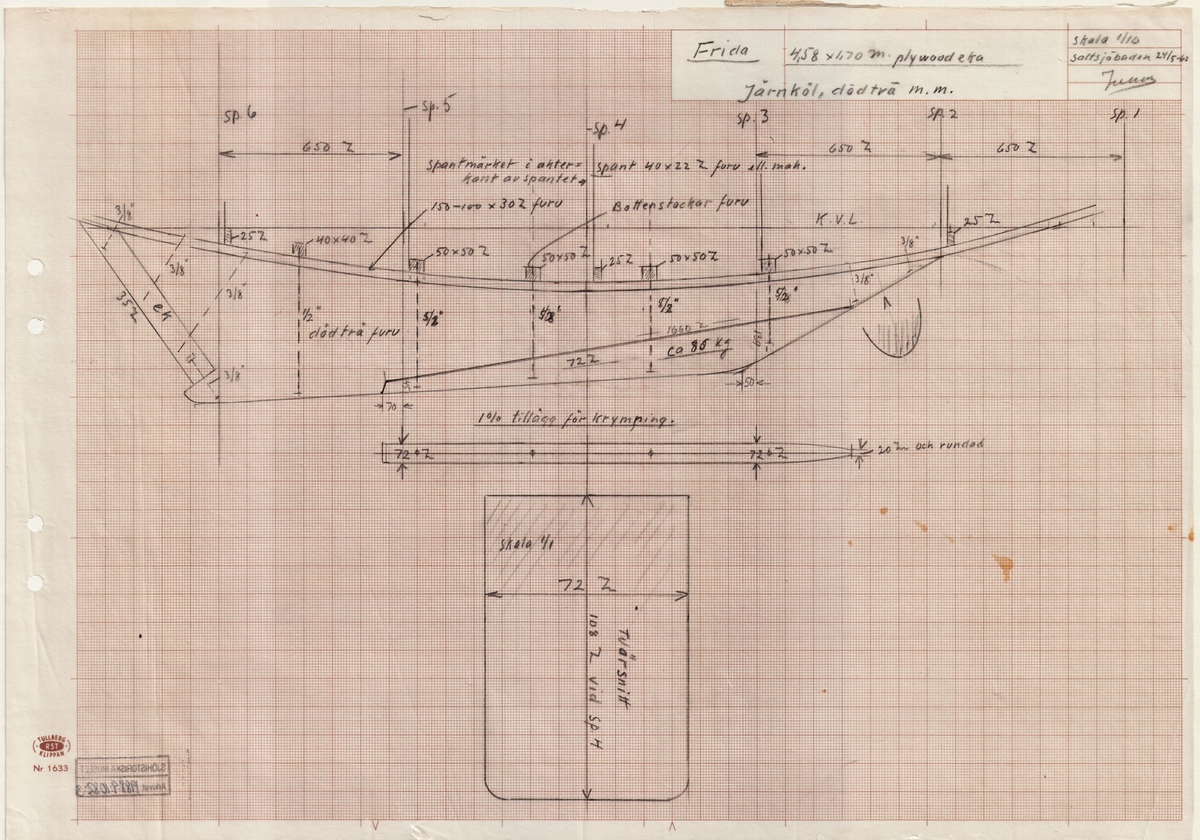 Frida
4,58 x 1,70 m. plywoodeka
Järnköl, dödträ m.m.
Skala 1/10
Saltsjöbaden 24/5-62
sp. 6
sp. 5
sp. 4
sp. 3
sp. 2
sp. 1
650 Z
650 Z
650 Z
Spantmärket i akter=
kant av spantet
spant 40x22 Z furu ell. mah.
150-100 x 30 Z furu
Bottenstockar furu
K.V.L.
3/8"
25 Z
40x40 Z
50x50 Z
50x50 Z
25 Z
50x50 Z
50x50 Z
25 Z
3/8"
3/8"
3/8"
3/8"
3/8"
35 Z
ek
1/2"
dödträ furu
5/8"
5/8"
5/8"
5/8"
1660 Z
72 Z
ca 85 kg
70
50
1% tillägg för krymping.
72 Z
72 Z
20 Z och rundad
Skala 1/1
72 Z
Tvärsnitt
108 Z vid sp. 4
TULLBERG
RST
KLIPPAN
Nr 1633
SJÖHISTORISKA MUSEET